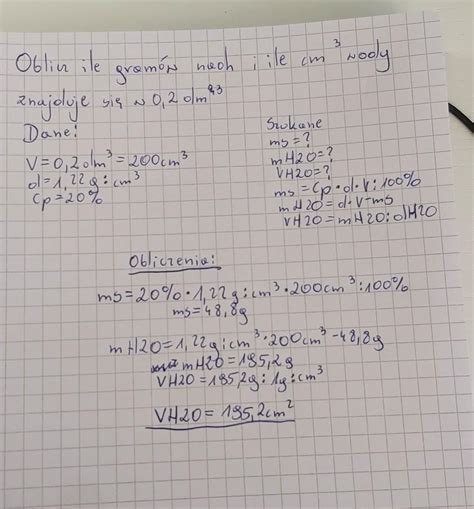 Oblicz ile gramów naoh i ile cm³ wody
znajduje się w 0,2 dm³
Dane:
V=0,2dm³=200cm³
d=1,22g:cm³
Cp=20%
Szukane
ms=?
mH2O=?
VH2O=?
ms=Cp·d·V:100%
mH2O=d·V-ms
VH2O=mH2O:dH2O
Obliczenia:
ms=20%·1,22g:cm³·200cm³:100%
ms=48,8g
mH2O=1,22g:cm³·200cm³-48,8g
mH2O=195,2g
VH2O=195,2g:1g:cm³
VH2O=195,2cm²